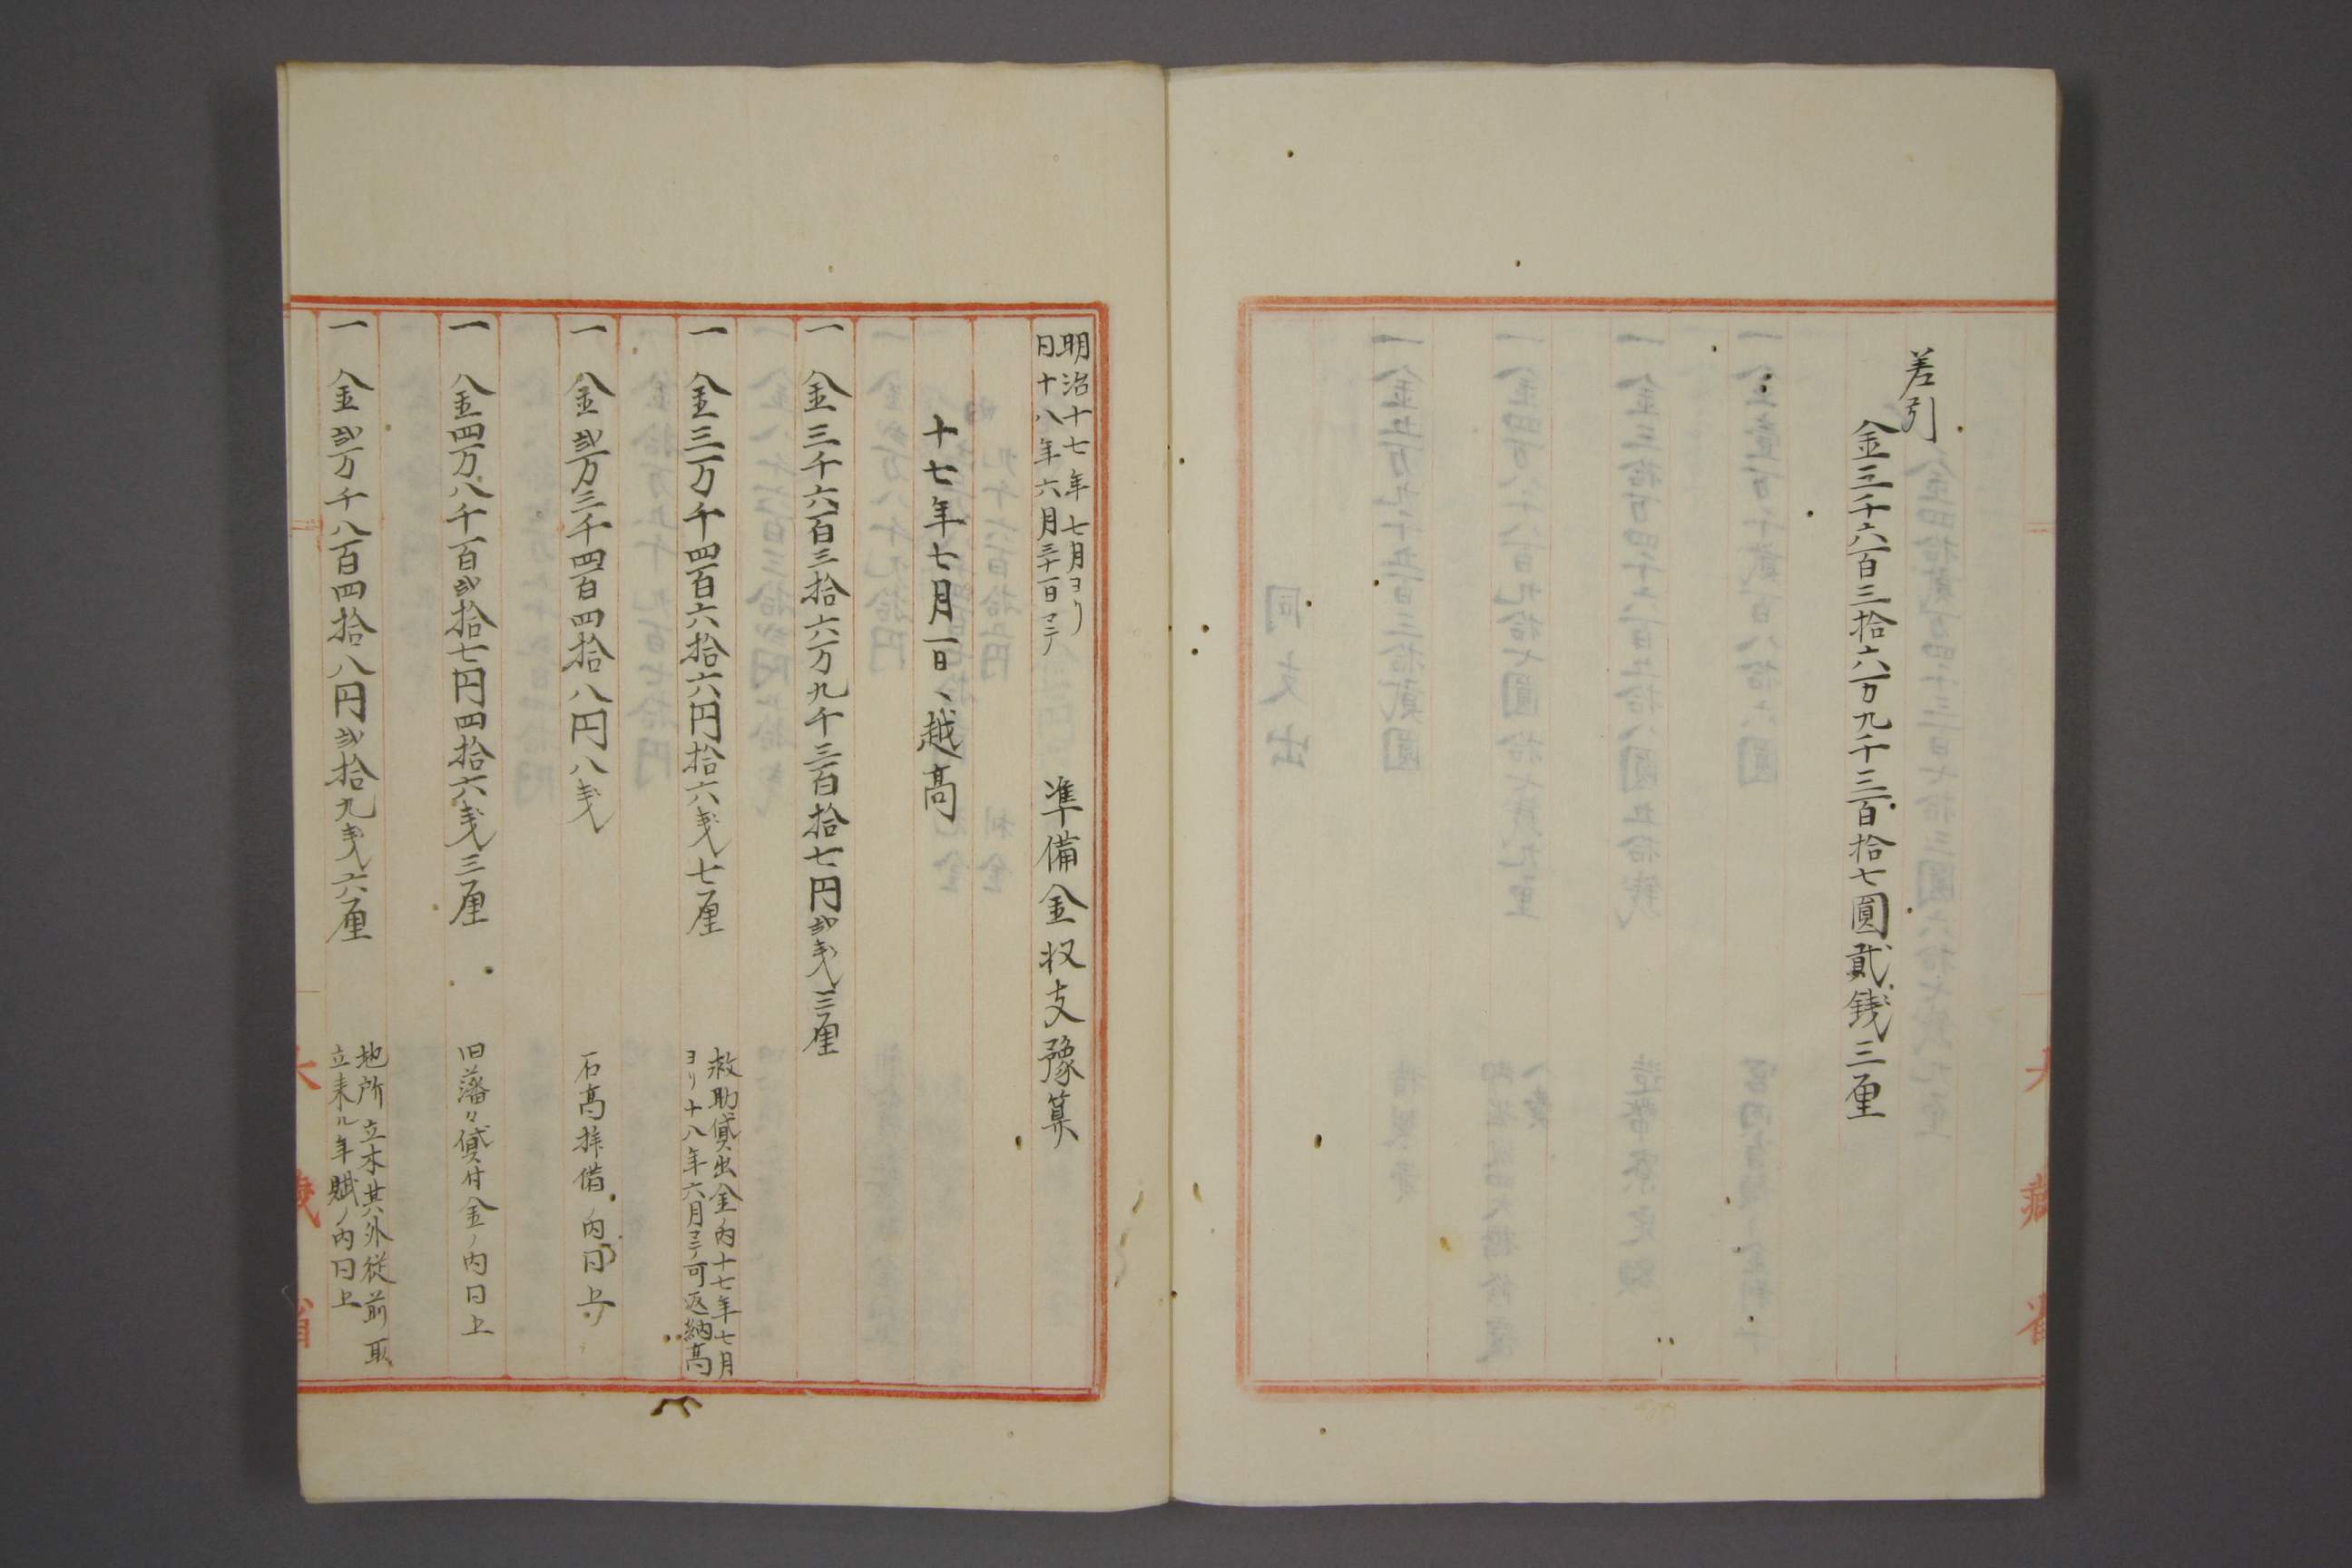 差引
金三千六百三拾六万九千三百拾七圓貳銭三厘
大藏省
明治十七年七月ヨリ
日十八年六月三十日マテ
準備金収支豫算
十七年七月一日ヘ越高
一 金三千六百三拾六万九千三百拾七円弐戋三厘
一 金三万千四百六拾六円拾六戋七厘
救助貸出金ノ内十七年七月
ヨリ十八年六月マテ可返納高
一 金弐万三千四百四拾八円八戋
石高拝借ノ内同上
一 金四万八千百弐拾七円四拾六戋三厘
旧藩々貸付金ノ内同上
一 金弐万千八百四拾八円弐拾九戋六厘
地所立木其外従前取
立来ル年賦ノ内同上
大藏省